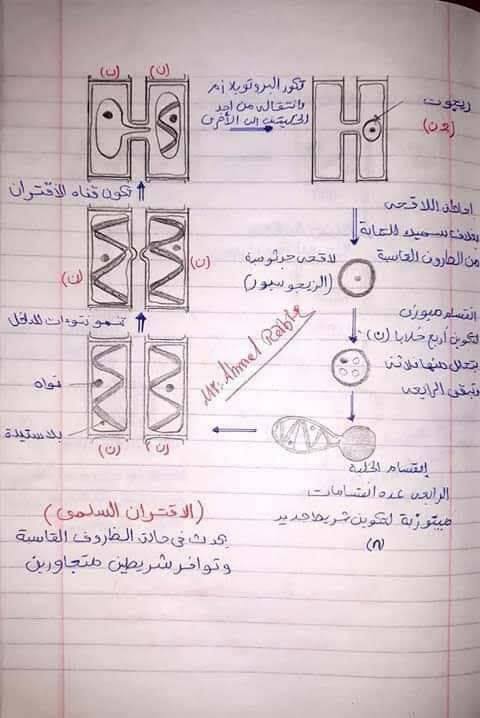 (ن) (ن)
تكور البروتوبلازم
وانتقاله من احد
الخليتين إلى الأخرى
زيجوت
(2ن)
تكون قناه الاقتران
احاطة اللاقحه
بغلاف سميك للحماية
من الظروف القاسية
لاقحه جرثومية
(الزيجوسبور)
(ن) (ن)
تنمو نتوءات للداخل
انقسام ميوزى
لتكوين أربع خلايا (ن)
يتحلل منها ثلاثه
وتبقى الرابعه
Mr. Ahmed Rabie
نواه
بلاستيدة
(ن) (ن)
إنقسام الخلية
الرابعه عده انقسامات
ميتوزية لتكوين شريط جديد
(ن)
(الاقتران السلمى)
يحدث فى حالة الظروف القاسية
وتوافر شريطين متجاورين